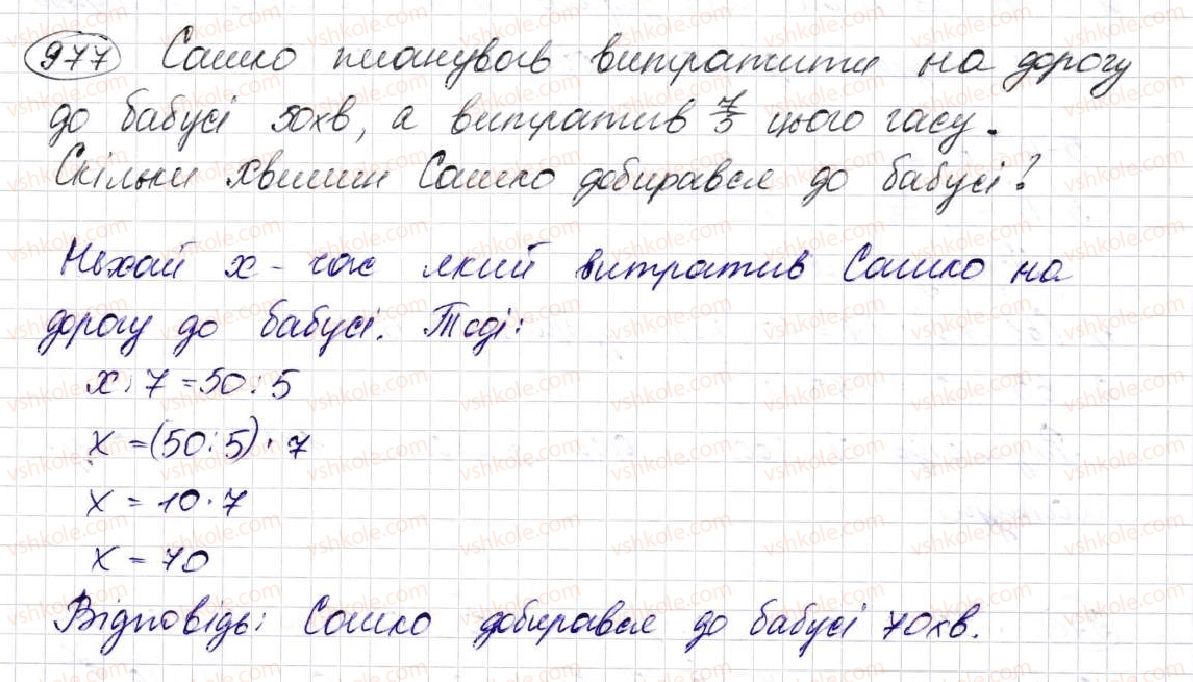 977 Сашко планував витратити на дорогу
до бабусі 50хв, а витратив 7/5 цього часу.
Скільки хвилин Сашко добирався до бабусі?
Нехай х - час який витратив Сашко на
дорогу до бабусі. Тоді:
х : 7 = 50 : 5
х = (50 : 5) · 7
х = 10 · 7
х = 70
Відповідь: Сашко добирався до бабусі 70хв.